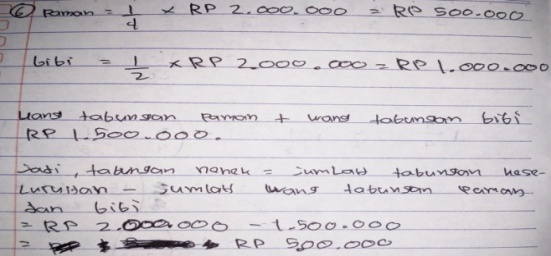 6 Paman = 1/4 x RP 2.000.000 = RP 500.000
bibi = 1/2 x RP 2.000.000 = RP 1.000.000
Uang tabungan Paman + uang tabungan bibi
RP 1.500.000.
Jadi, tabungan nenek = jumlah tabungan kese-
luruhan - jumlah uang tabungan paman
dan bibi
= RP 2.000.000 - 1.500.000
= RP 500.000